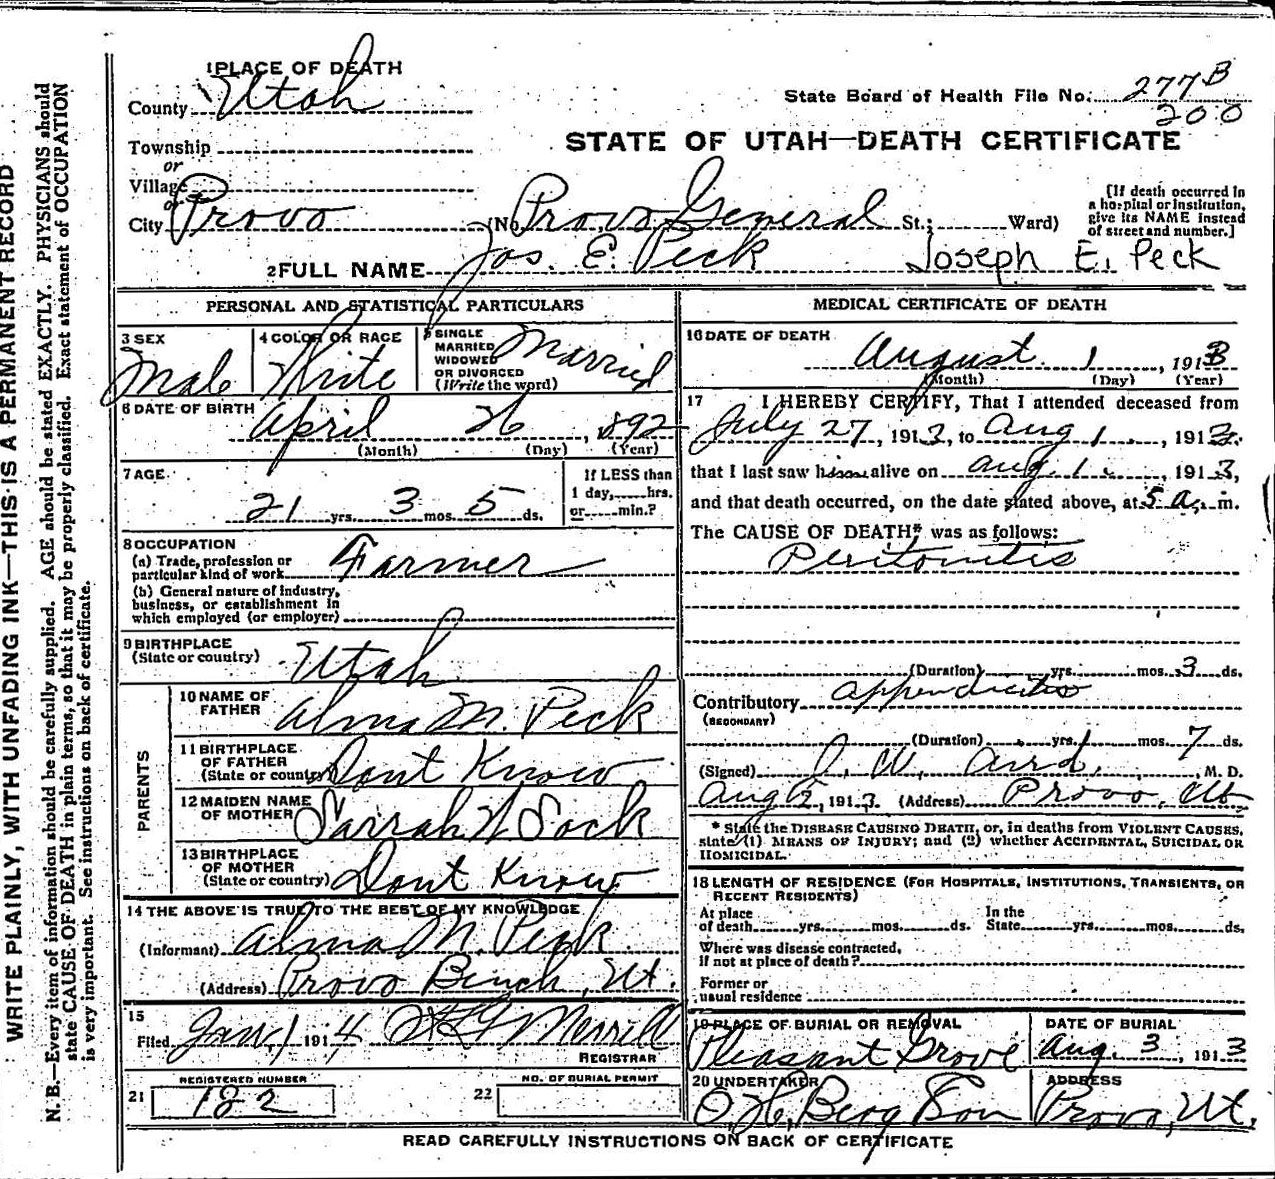 WRITE PLAINLY, WITH UNFADING INK—THIS IS A PERMANENT RECORD
N. B.—Every item of information should be carefully supplied. AGE should be stated EXACTLY. PHYSICIANS should
state CAUSE OF DEATH in plain terms, so that it may be properly classified. Exact statement of OCCUPATION
is very important. See instructions on back of certificate.
1 PLACE OF DEATH
County Utah
State Board of Health File No. 277 B
200
STATE OF UTAH—DEATH CERTIFICATE
Township
or
Village
or
City Provo (No. Provo General St.; Ward)
[If death occurred in
a hospital or institution,
give its NAME instead
of street and number.]
2 FULL NAME Jos. E. Peck Joseph E. Peck
PERSONAL AND STATISTICAL PARTICULARS
3 SEX
Male
4 COLOR OR RACE
White
5 SINGLE
MARRIED
WIDOWED
OR DIVORCED
(Write the word)
Married
6 DATE OF BIRTH
April 26, 1892
(Month) (Day) (Year)
7 AGE
21 yrs. 3 mos. 5 ds.
If LESS than
1 day, hrs.
or min.?
8 OCCUPATION
(a) Trade, profession or
particular kind of work Farmer
(b) General nature of industry,
business, or establishment in
which employed (or employer)
9 BIRTHPLACE
(State or country) Utah
PARENTS
10 NAME OF
FATHER Alma M. Peck
11 BIRTHPLACE
OF FATHER
(State or country) Dont Know
12 MAIDEN NAME
OF MOTHER Sarrah
13 BIRTHPLACE
OF MOTHER
(State or country) Dont Know
14 THE ABOVE IS TRUE TO THE BEST OF MY KNOWLEDGE
(Informant) Alma M. Peck
(Address) Provo Bench, Ut.
15
Filed Jan. 1 1914 Merrill
REGISTRAR
REGISTERED NUMBER
21 182
NO. OF BURIAL PERMIT
22
MEDICAL CERTIFICATE OF DEATH
16 DATE OF DEATH
August 1, 1913
(Month) (Day) (Year)
17 I HEREBY CERTIFY, That I attended deceased from
July 27, 1913, to Aug 1, 1913,
that I last saw him alive on Aug. 1, 1913,
and that death occurred, on the date stated above, at 5 a. m.
The CAUSE OF DEATH* was as follows:
Peritonitis
(Duration) yrs. mos. 3 ds.
Contributory appendicitis
(SECONDARY)
(Duration) yrs. mos. 7 ds.
(Signed) J. W. Aird, M. D.
Aug 1913 (Address) Provo, Ut
* State the DISEASE CAUSING DEATH, or, in deaths from VIOLENT CAUSES,
state (1) MEANS OF INJURY; and (2) whether ACCIDENTAL, SUICIDAL OR
HOMICIDAL.
18 LENGTH OF RESIDENCE (FOR HOSPITALS, INSTITUTIONS, TRANSIENTS, OR
RECENT RESIDENTS)
At place
of death yrs. mos. ds.
In the
State yrs. mos. ds.
Where was disease contracted,
if not at place of death?
Former or
usual residence
19 PLACE OF BURIAL OR REMOVAL
Pleasant Grove
DATE OF BURIAL
Aug. 3, 1913
20 UNDERTAKER
O. H. Berg & Son
ADDRESS
Provo, Ut.
READ CAREFULLY INSTRUCTIONS ON BACK OF CERTIFICATE